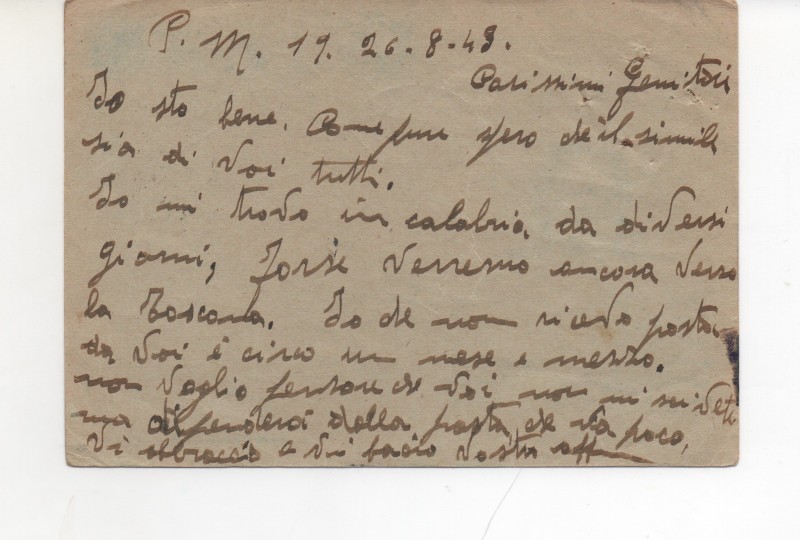 P. M. 19. 26-8-43.
Carissimi Genitori
Io sto bene. Come pure spero che il simile
sia di voi tutti.
Io mi trovo in calabria da diversi
giorni, forse verremo ancora verso
la Toscana. Io che non ricevo posta
da voi è circa un mese e mezzo.
non voglio pensare che voi non mi scrivete
ma dipenderà della posta che va poco,
Vi abbraccio e vi bacio vostro aff